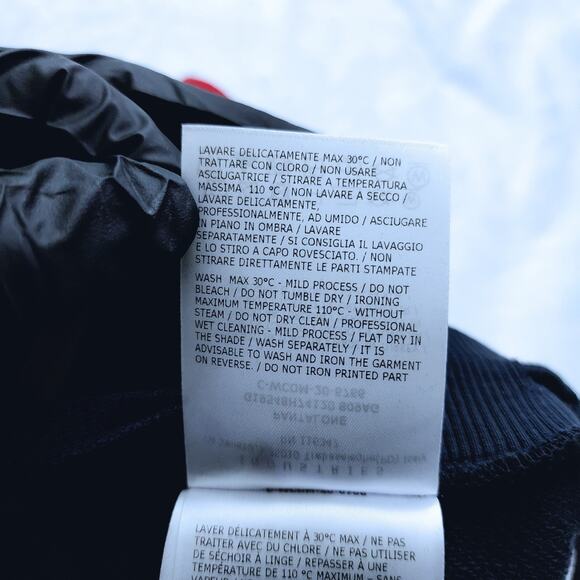 LAVARE DELICATAMENTE MAX 30°C / NON
TRATTARE CON CLORO / NON USARE
ASCIUGATRICE / STIRARE A TEMPERATURA
MASSIMA 110 °C / NON LAVARE A SECCO /
LAVARE DELICATAMENTE,
PROFESSIONALMENTE, AD UMIDO / ASCIUGARE
IN PIANO IN OMBRA / LAVARE
SEPARATAMENTE / SI CONSIGLIA IL LAVAGGIO
E LO STIRO A CAPO ROVESCIATO. / NON
STIRARE DIRETTAMENTE LE PARTI STAMPATE
WASH MAX 30°C - MILD PROCESS / DO NOT
BLEACH / DO NOT TUMBLE DRY / IRONING
MAXIMUM TEMPERATURE 110°C - WITHOUT
STEAM / DO NOT DRY CLEAN / PROFESSIONAL
WET CLEANING - MILD PROCESS / FLAT DRY IN
THE SHADE / WASH SEPARATELY / IT IS
ADVISABLE TO WASH AND IRON THE GARMENT
ON REVERSE. / DO NOT IRON PRINTED PART
C-WCOM-20-6766
G19548H74120 809AG
PANTALONE
RN 116347
INDUSTRIES
LAVER DÉLICATEMENT À 30°C MAX / NE PAS
TRAITER AVEC DU CHLORE / NE PAS UTILISER
DE SÉCHOIR À LINGE / REPASSER À UNE
TEMPÉRATURE DE 110 °C MAXIMUM - SANS